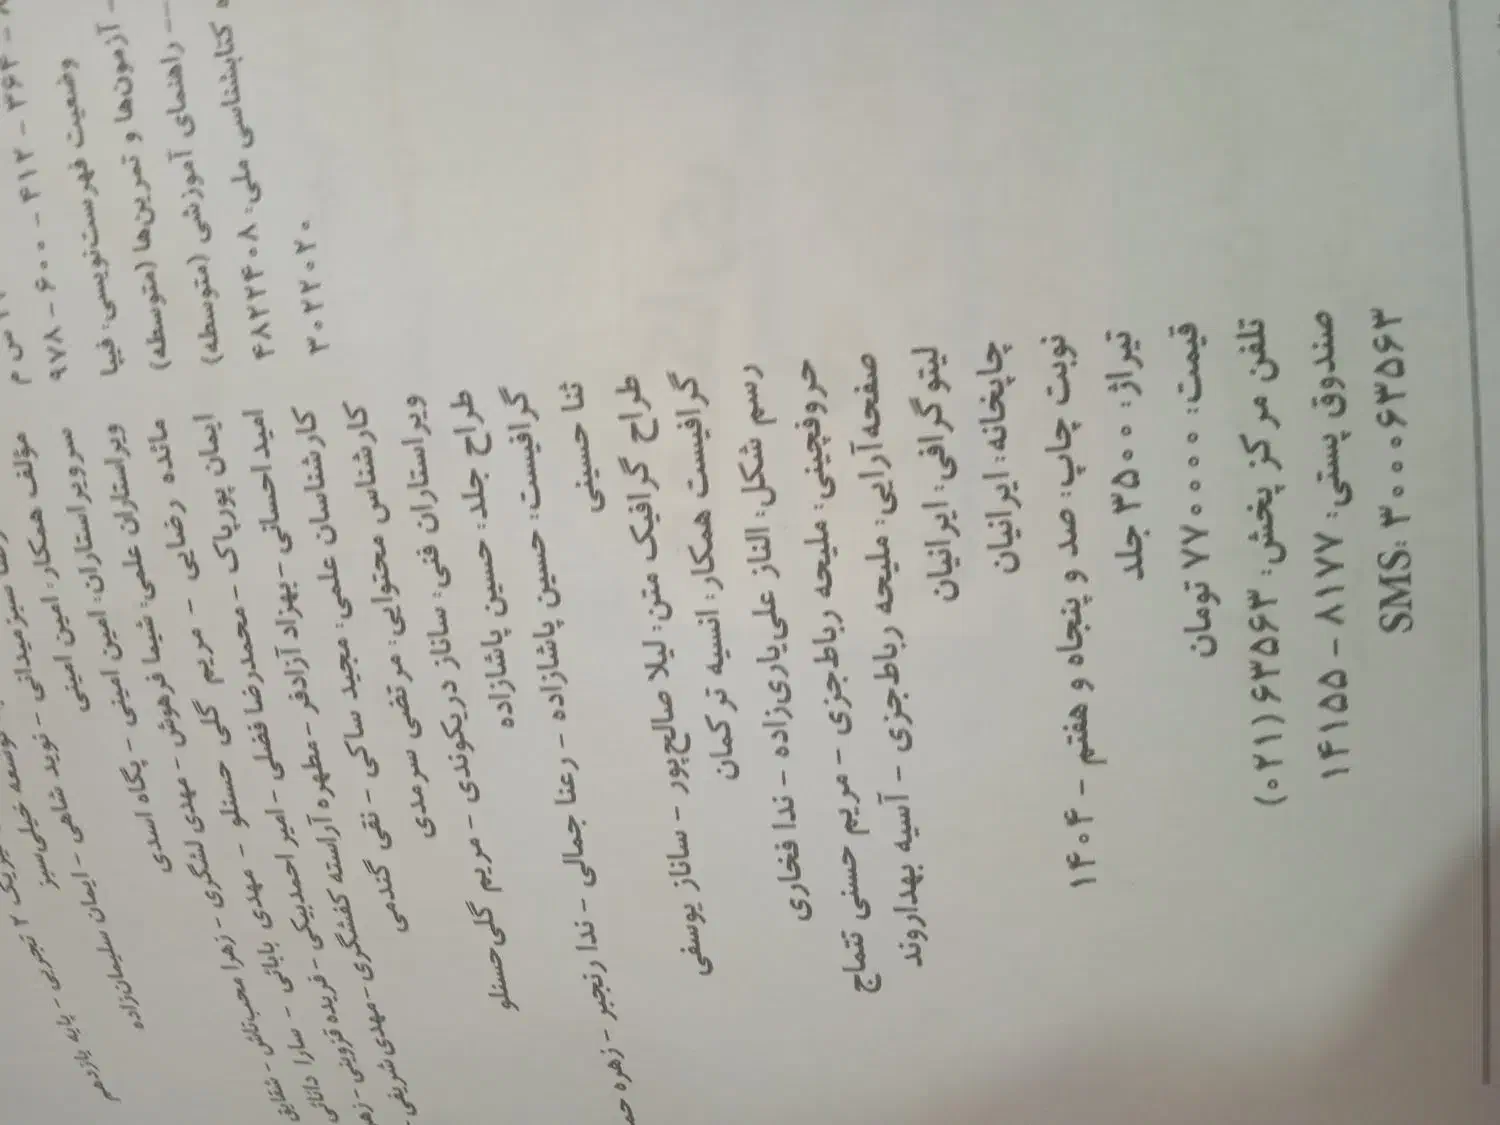 ۹۷۸ - ۶۰۰ - ۴۱۲ - ۳۶۴ -
وضعیت فهرست‌نویسی: فیپا
آزمون‌ها و تمرین‌ها (متوسطه)
-- راهنمای آموزشی (متوسطه)
کتابشناسی ملی: ۴۸۲۲۴۰۸
۳۰۲۲۰۲۰
فیزیک ۲ تجربی - پایه یازدهم
توسعه خیلی‌سبز
سبزمیدانی
مؤلف همکار: امین امینی - نوید شاهی - ایمان سلیمان‌زاده
سرویراستاران: امین امینی
ویراستاران علمی: شیما فرهوش - مهدی لشگری - زهرا محب‌تاش - شقایق
پگاه اسدی
مائده رضایی - مریم گلی حسنلو
ایمان پورپاک - محمدرضا فضلی - امیر احمدبیکی - فریده قزوینی
امید احسانی - بهزاد آزادفر - مطهره آراسته کفشگری - مهدی شریفی
مهدی بابائی - سارا دانائی
کارشناسان علمی: مجید ساکی - تقی گندمی
کارشناس محتوایی: مرتضی سرمدی
ویراستاران فنی: ساناز دریکوندی - مریم گلی‌حسنلو
طراح جلد: حسین پاشازاده
گرافیست: حسین پاشازاده - رعنا جمالی - ندا رنجبر - زهره
ثنا حسینی
طراح گرافیک متن: لیلا صالح‌پور - ساناز یوسفی
گرافیست همکار: انسیه ترکمان
رسم شکل: الناز علی‌یاری‌زاده - ندا فخاری
حروفچینی: ملیحه رباط‌جزی - مریم حسنی تتماج
صفحه‌آرایی: ملیحه رباط‌جزی - آسیه بهداروند
لیتوگرافی: ایرانیان
چاپخانه: ایرانیان
نوبت چاپ: صد و پنجاه و هفتم - ۱۴۰۴
تیراژ: ۳۵۰۰ جلد
قیمت: ۷۷۰۰۰۰ تومان
تلفن مرکز پخش: ۶۳۵۶۳(۰۲۱)
صندوق پستی: ۸۱۷۷ - ۱۴۱۵۵
SMS: ۳۰۰۰۶۳۵۶۳